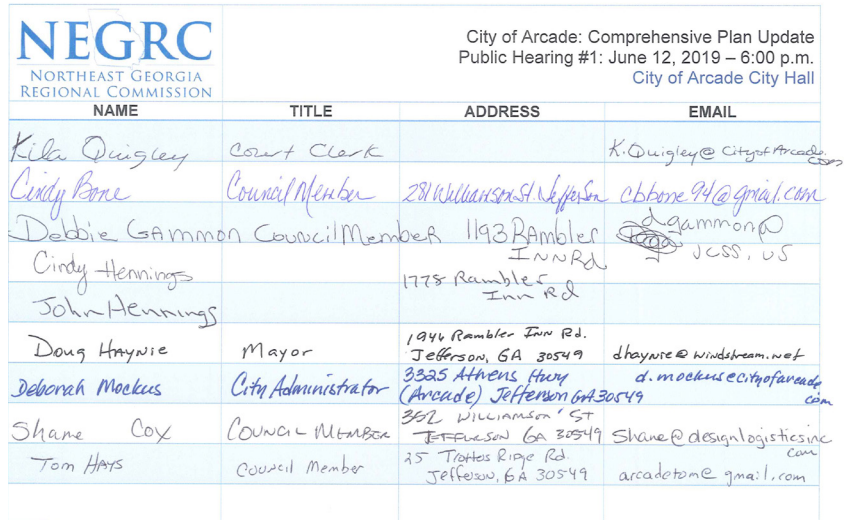 NEGRC
NORTHEAST GEORGIA
REGIONAL COMMISSION
City of Arcade: Comprehensive Plan Update
Public Hearing #1: June 12, 2019 – 6:00 p.m.
City of Arcade City Hall
NAME TITLE ADDRESS EMAIL
Kila Quigley Court Clerk K.Quigley@CityofArcade.com
Cindy Bone Council Member 281 Williamson St. Jefferson cbbone94@gmail.com
Debbie GAMMON COUNCIL MEMBER 1193 RAMBLER dgammon@
INN Rd JCSS.US
Cindy Hennings 1778 Rambler
Inn Rd
John Hennings
Doug HAYNIE Mayor 1946 Rambler Inn Rd.
Jefferson, GA 30549 dhaynie@windstream.net
Deborah Mockus City Administrator 3325 Athens Hwy d.mockus@cityofarcade
(Arcade) Jefferson GA 30549 com
Shane Cox COUNCIL MEMBER 352 WILLIAMSON ST
JEFFERSON GA 30549 Shane@designlogisticsinc
com
Tom HAYS Council Member 25 Trotters Ridge Rd.
Jefferson, GA 30549 arcadetom@gmail.com